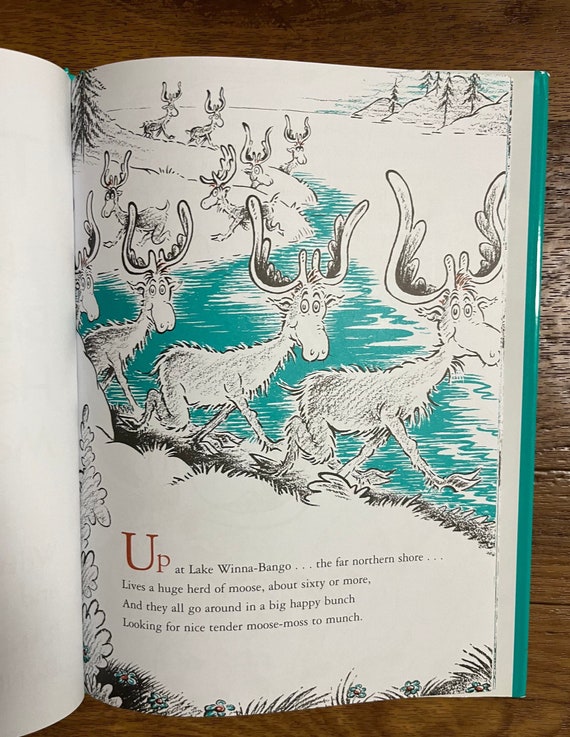 Up at Lake Winna-Bango . . . the far northern shore . . .
Lives a huge herd of moose, about sixty or more,
And they all go around in a big happy bunch
Looking for nice tender moose-moss to munch.